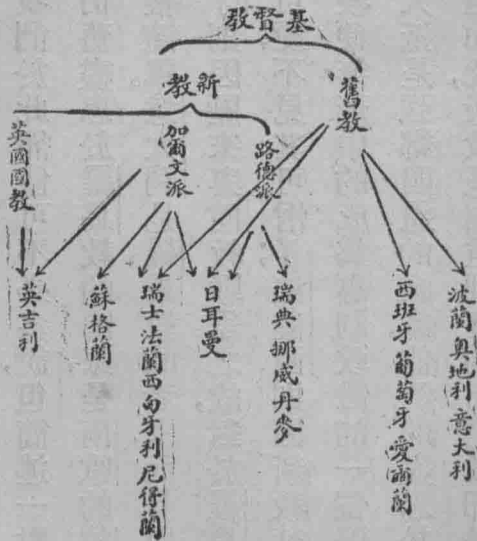 基督教
舊教
新教
路德派
加爾文派
英國國教
波蘭 奧地利 意大利
西班牙 葡萄牙 愛爾蘭
瑞典 挪威 丹麥
日耳曼
瑞士 法蘭西 匈牙利 尼得蘭
蘇格蘭
英吉利